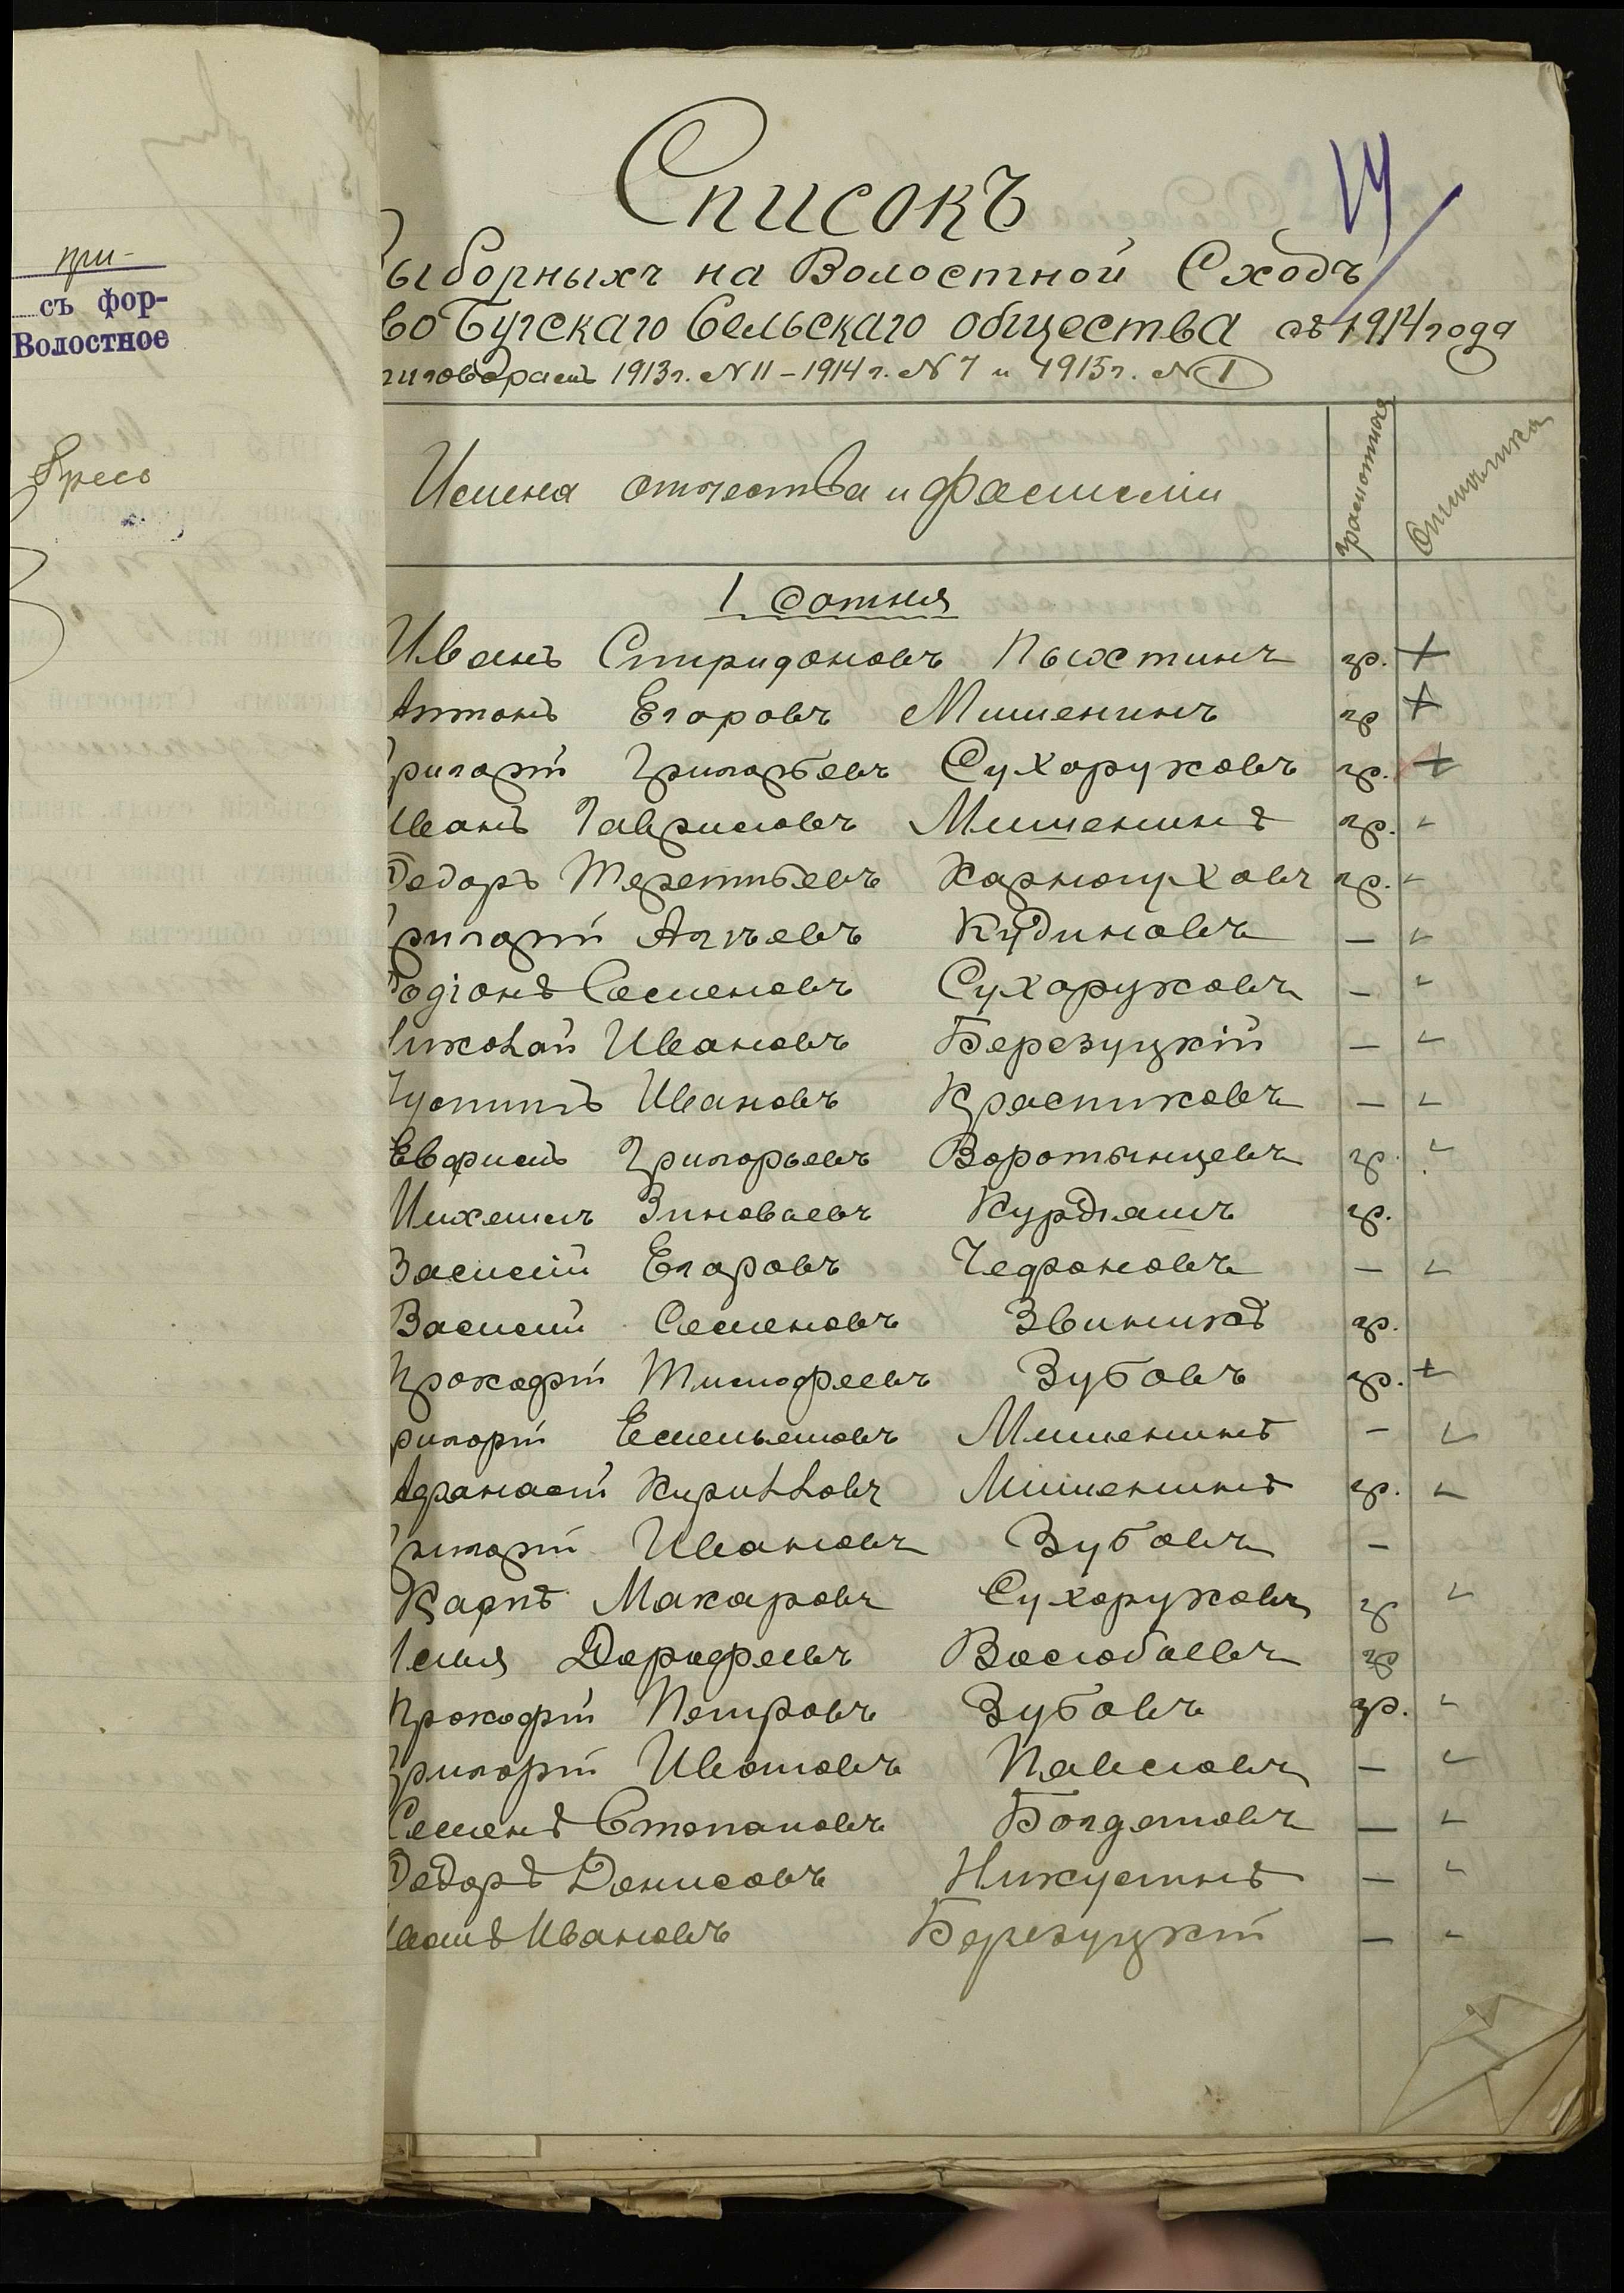 при-
съ фор-
Волостное
Списокъ
14
ыборныхъ на Волостной Сходъ
во Бугскаго Сельскаго общества съ 1914 года
приговорамъ 1913 г. № 11 – 1914 г. № 7 и 1915 г. № 1
Имена отчества и фамиліи
грамотные
Отмѣтка
1 сотня
Иванъ Спиридоновъ Пыхтинъ гр. +
Антонъ Егоровъ Мишенинъ гр +
Григорій Григорьевъ Сухоруковъ гр. +
Иванъ Гавриловъ Мишенинъ гр.
Федоръ Терентьевъ Карнауховъ гр.
Григорій Кудиновъ –
Родіонъ Семеновъ Сухоруковъ –
Николай Ивановъ Березуцкій –
Устинъ Ивановъ Красниковъ –
Ефимъ Григорьевъ Воротынцевъ гр.
Михаилъ Зиновьевъ гр.
Василій Егоровъ Чефоновъ –
Василій Семеновъ гр.
Прокофій Тимофеевъ Зубовъ гр. +
ригорій Емельяновъ Мишенинъ –
Афанасій Кирилловъ Мишенинъ гр.
Григорій Ивановъ Зубовъ –
Карпъ Макаровъ Сухоруковъ гр
Илья Дорофеевъ гр
Прокофій Петровъ Зубовъ гр.
Григорій Ивановъ Павловъ –
Семенъ Степановъ Богдановъ –
Федоръ Денисовъ Никулинъ –
Иванъ Ивановъ Березуцкій –